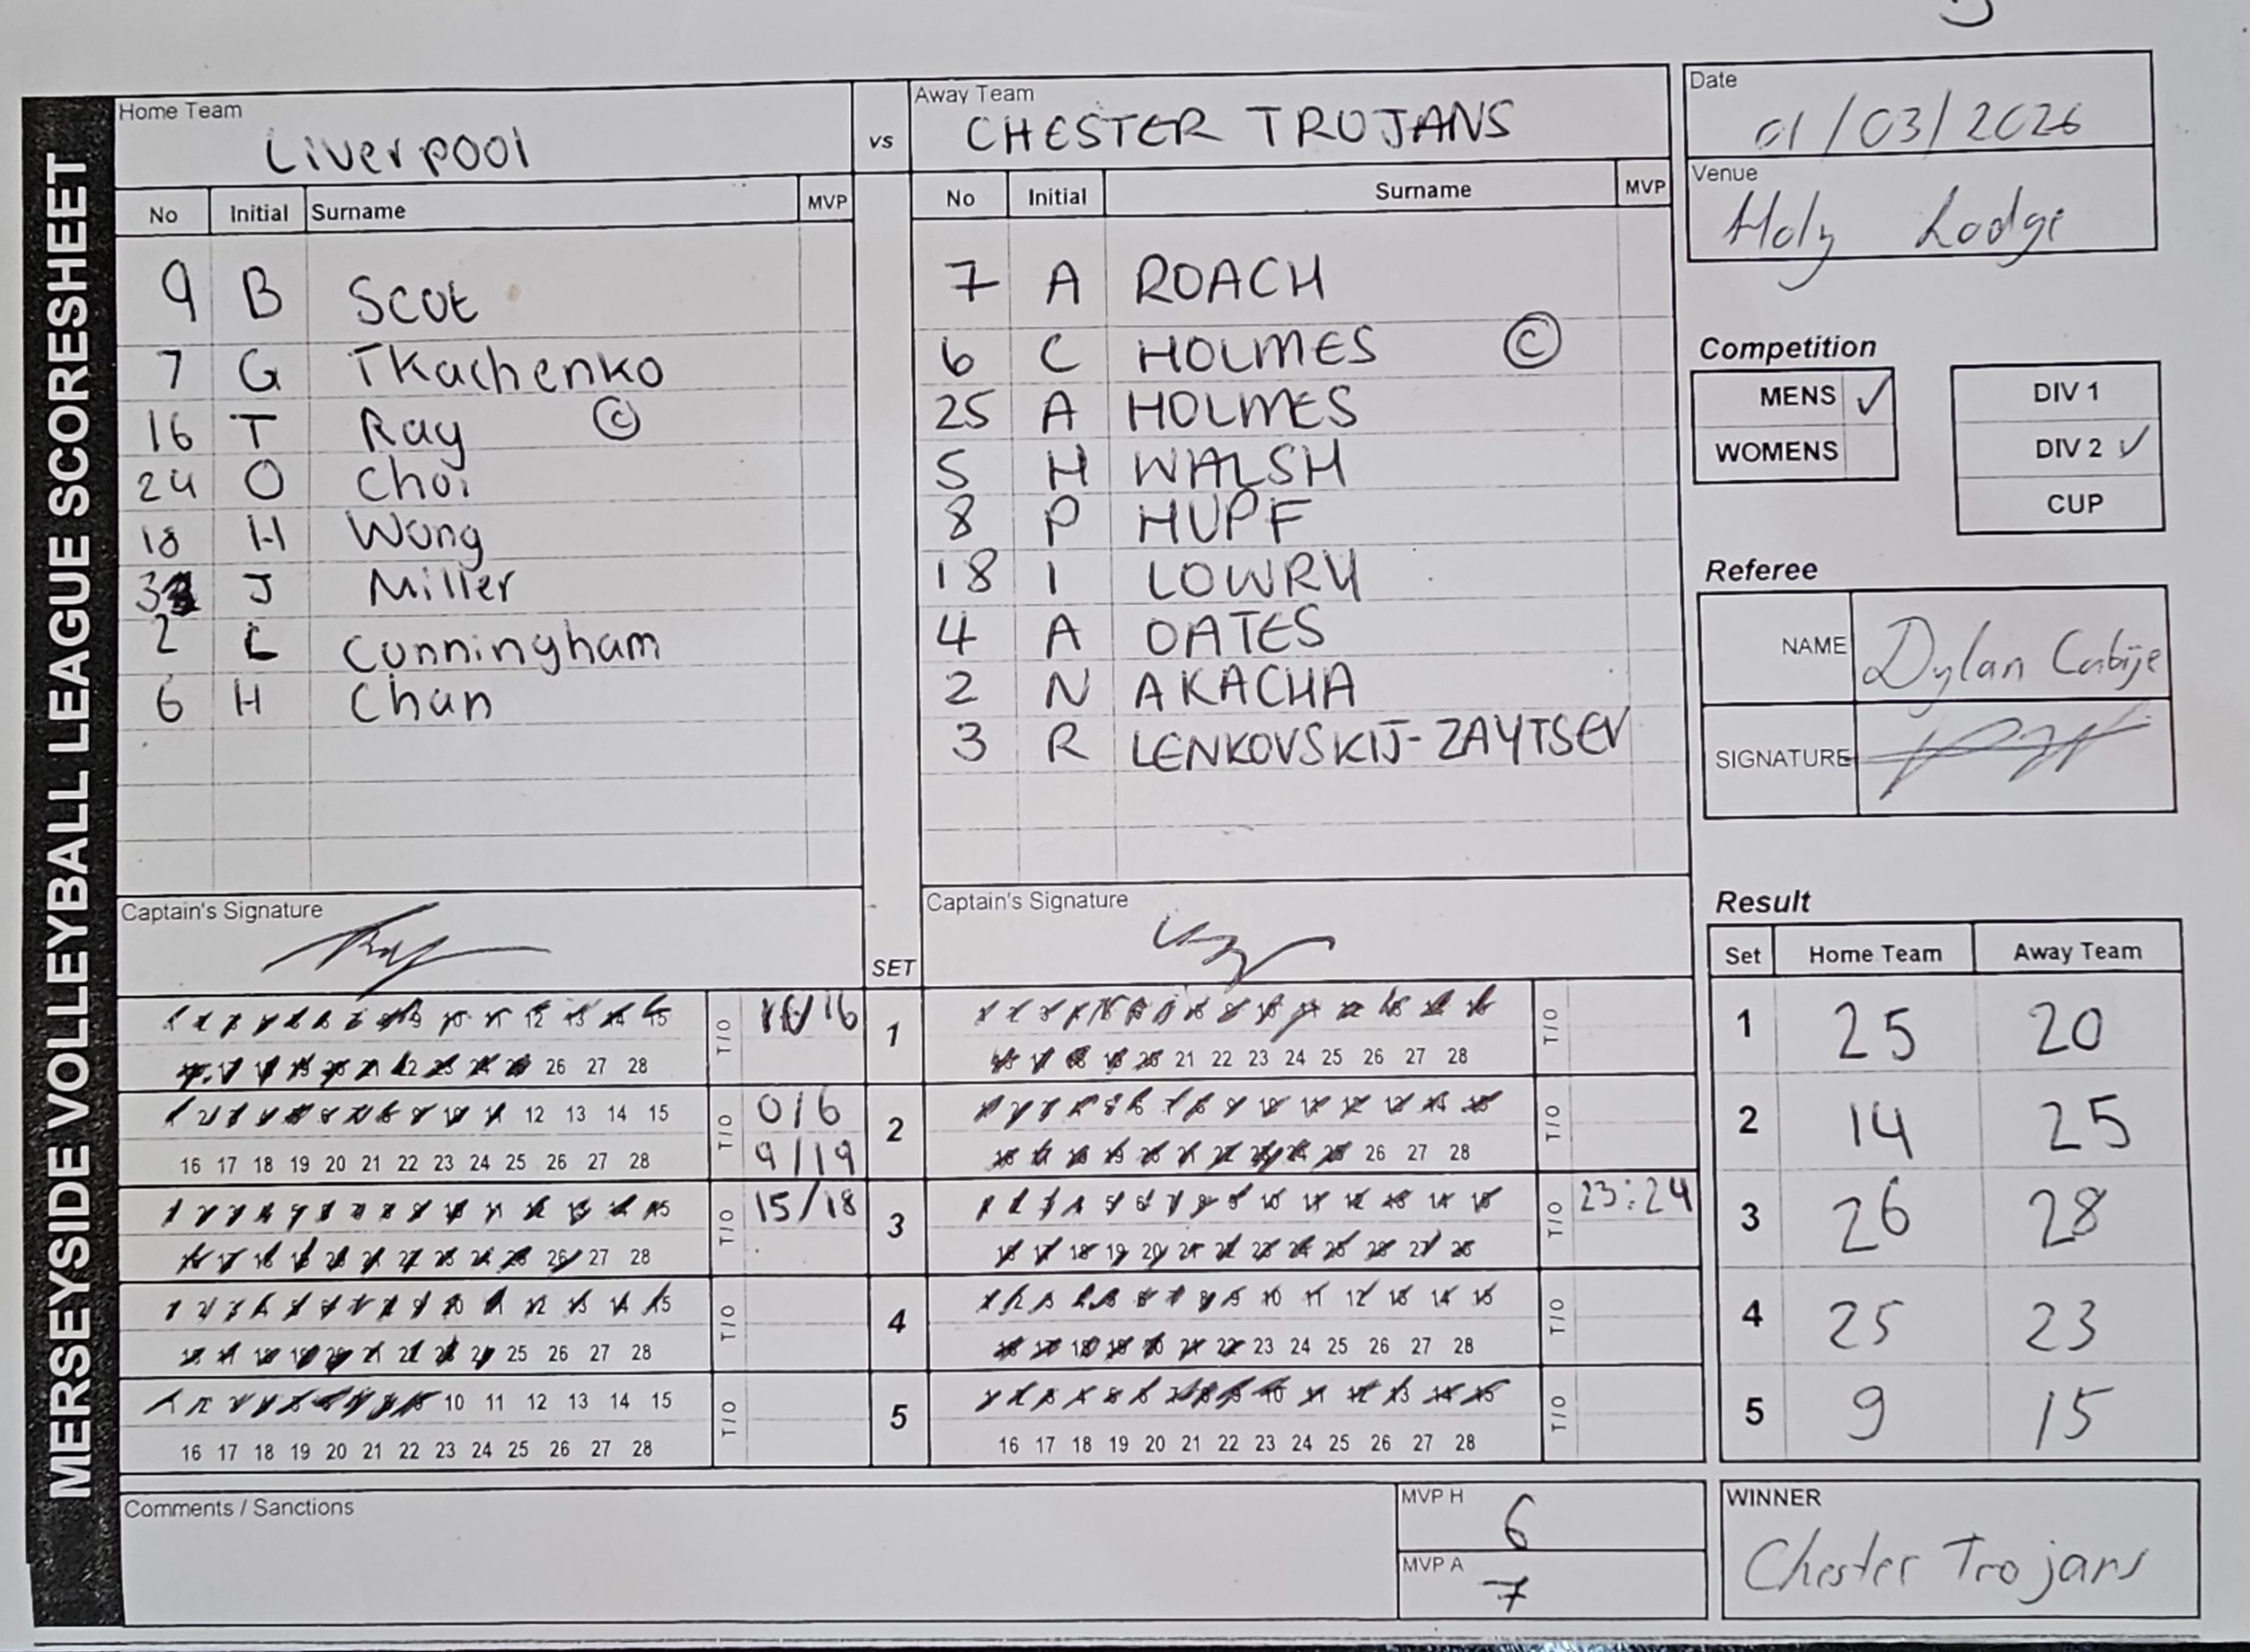 MERSEYSIDE VOLLEYBALL LEAGUE SCORESHEET
Home Team
Liverpool
vs
Away Team
CHESTER TROJANS
No Initial Surname MVP
9 B Scot
7 G Tkachenko
16 T Ray ©
24 O Choi
18 H Wong
J Miller
2 L Cunningham
6 H Chan
No Initial Surname MVP
7 A ROACH
6 C HOLMES ©
25 A HOLMES
5 H WALSH
8 P HUPF
18 I LOWRY
4 A OATES
2 N AKACHA
3 R LENKOVSKIJ-ZAYTSEV
Captain's Signature
SET
Captain's Signature
1 2 3 4 5 6 7 8 9 10 11 12 13 14 15 T/O
16 17 18 19 20 21 22 23 24 25 26 27 28
1
1 2 3 4 5 6 7 8 9 10 11 12 13 14 15 T/O
16 17 18 19 20 21 22 23 24 25 26 27 28
1 2 3 4 5 6 7 8 9 10 11 12 13 14 15 T/O 0/6
16 17 18 19 20 21 22 23 24 25 26 27 28 9/19
2
1 2 3 4 5 6 7 8 9 10 11 12 13 14 15 T/O
16 17 18 19 20 21 22 23 24 25 26 27 28
1 2 3 4 5 6 7 8 9 10 11 12 13 14 15 T/O 15/18
16 17 18 19 20 21 22 23 24 25 26 27 28
3
1 2 3 4 5 6 7 8 9 10 11 12 13 14 15 T/O 23:24
16 17 18 19 20 21 22 23 24 25 26 27 28
1 2 3 4 5 6 7 8 9 10 11 12 13 14 15 T/O
16 17 18 19 20 21 22 23 24 25 26 27 28
4
1 2 3 4 5 6 7 8 9 10 11 12 13 14 15 T/O
16 17 18 19 20 21 22 23 24 25 26 27 28
1 2 3 4 5 6 7 8 9 10 11 12 13 14 15 T/O
16 17 18 19 20 21 22 23 24 25 26 27 28
5
1 2 3 4 5 6 7 8 9 10 11 12 13 14 15 T/O
16 17 18 19 20 21 22 23 24 25 26 27 28
Comments / Sanctions
MVP H
6
MVP A
7
Date
01/03/2026
Venue
Holy Lodge
Competition
MENS ✓
WOMENS
DIV 1
DIV 2 ✓
CUP
Referee
NAME Dylan
SIGNATURE
Result
Set Home Team Away Team
1 25 20
2 14 25
3 26 28
4 25 23
5 9 15
WINNER
Chester Trojans